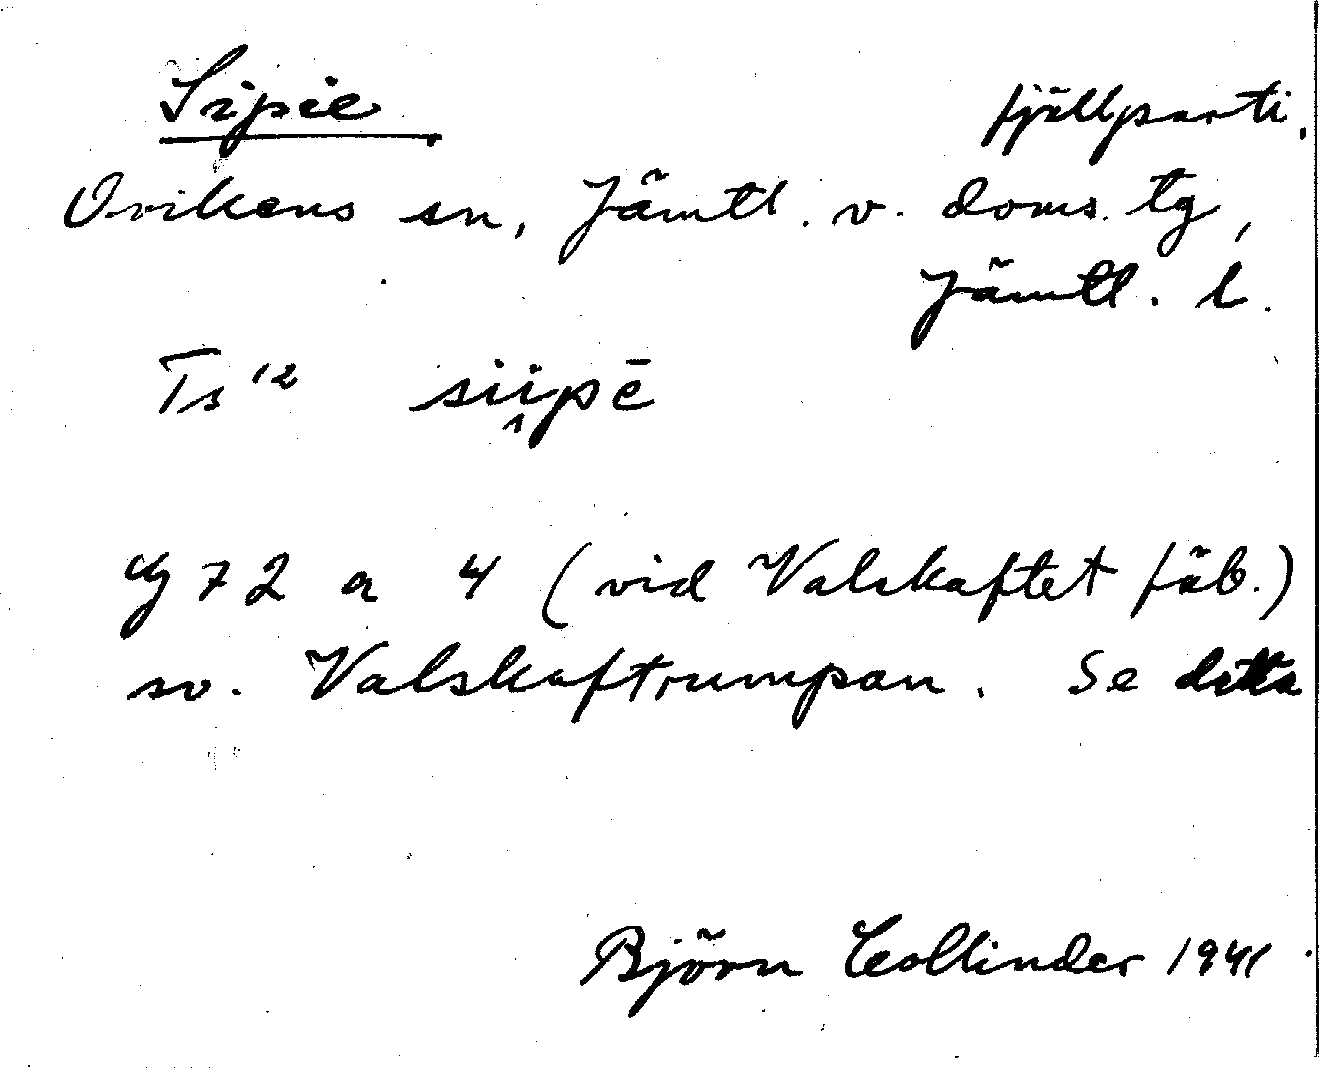 Sipie fjällparti.
Ovikens sn, Jämtl. v. doms. tg,
Jämtl. l.
Ts 12 siipē
G 72 a 4 (vid Valskaftet fäb.)
sv. Valskaftrumpan. Se detta
Björn Collinder 1941